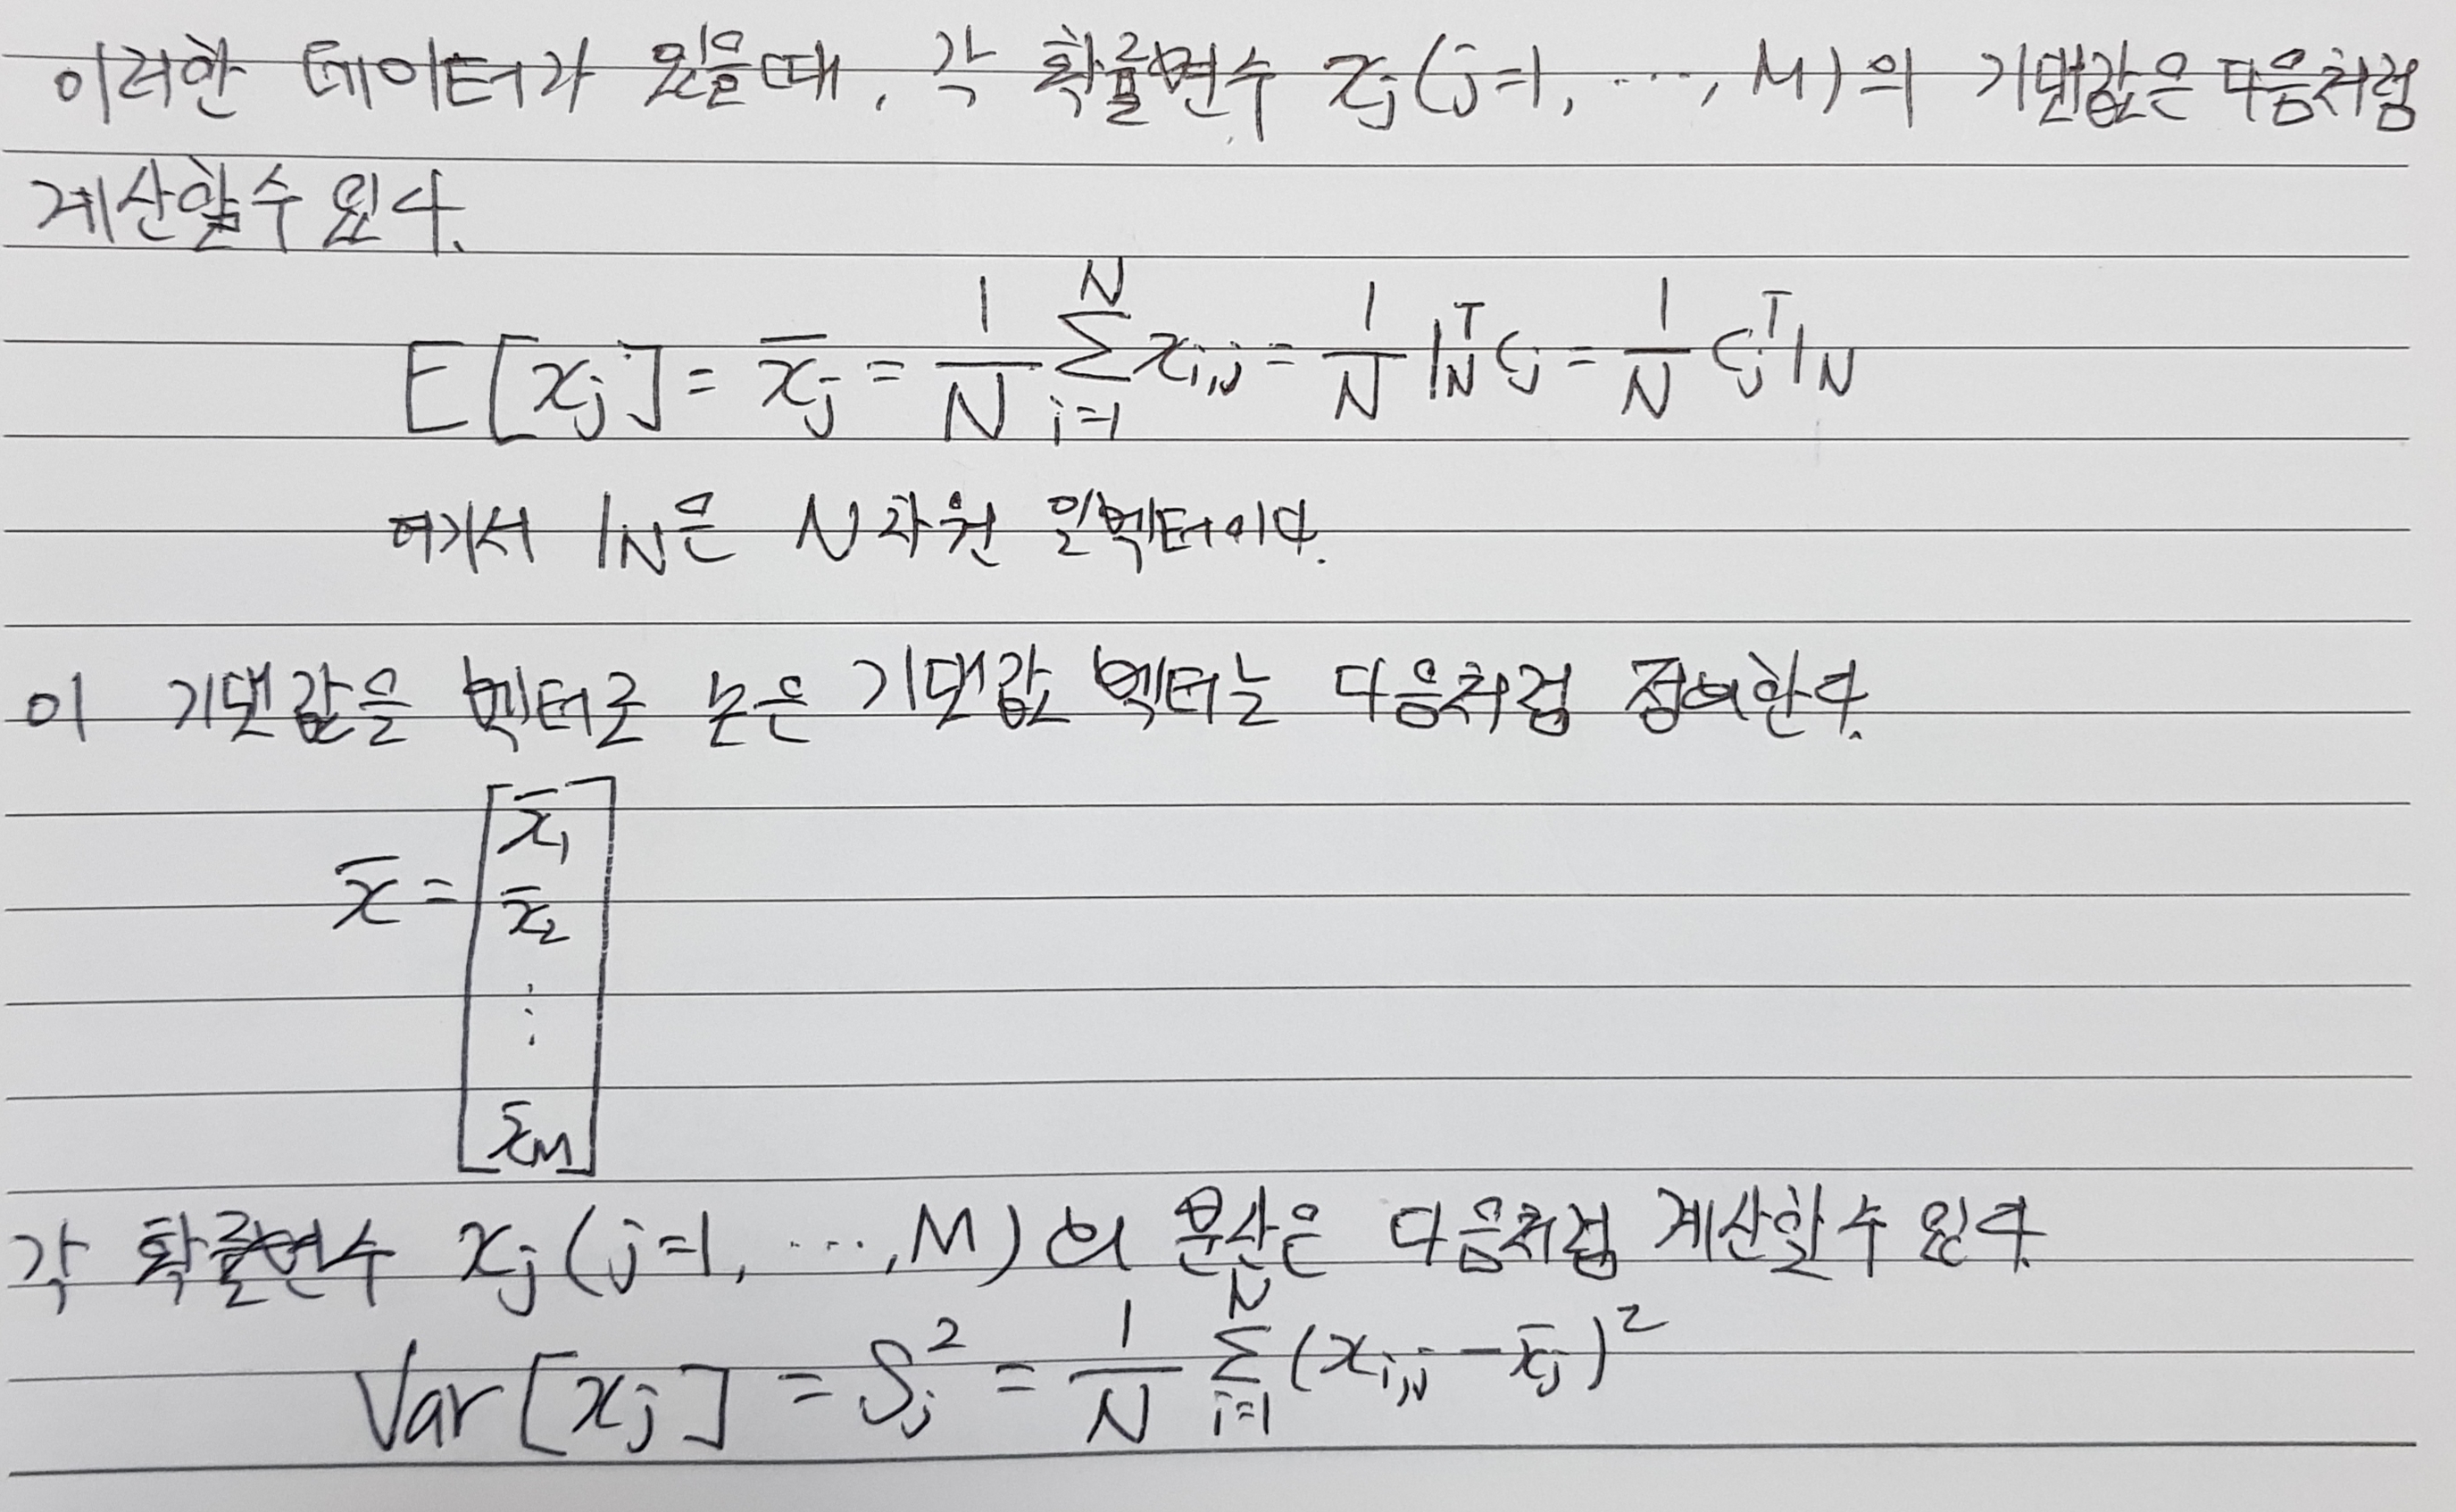 이러한 데이터가 있을때, 각 확률변수 xj (j=1, ..., M)의 기댓값은 다음처럼
계산할수 있다.
E[xj] = x̄j = 1/N ∑_{i=1}^{N} x_{i,j} = 1/N 1_N^T cj = 1/N cj^T 1_N
여기서 1_N은 N차원 일벡터이다.
이 기댓값을 벡터로 논은 기댓값 벡터는 다음처럼 정의한다.
x̄ = [x̄1
x̄2
⋮
x̄M]
각 확률변수 xj (j=1, ..., M)의 분산은 다음처럼 계산할수 있다
Var[xj] = Sj^2 = 1/N ∑_{i=1}^{N} (x_{i,j} - x̄j)^2